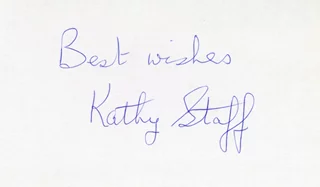 Best wishes
Kathy Staff